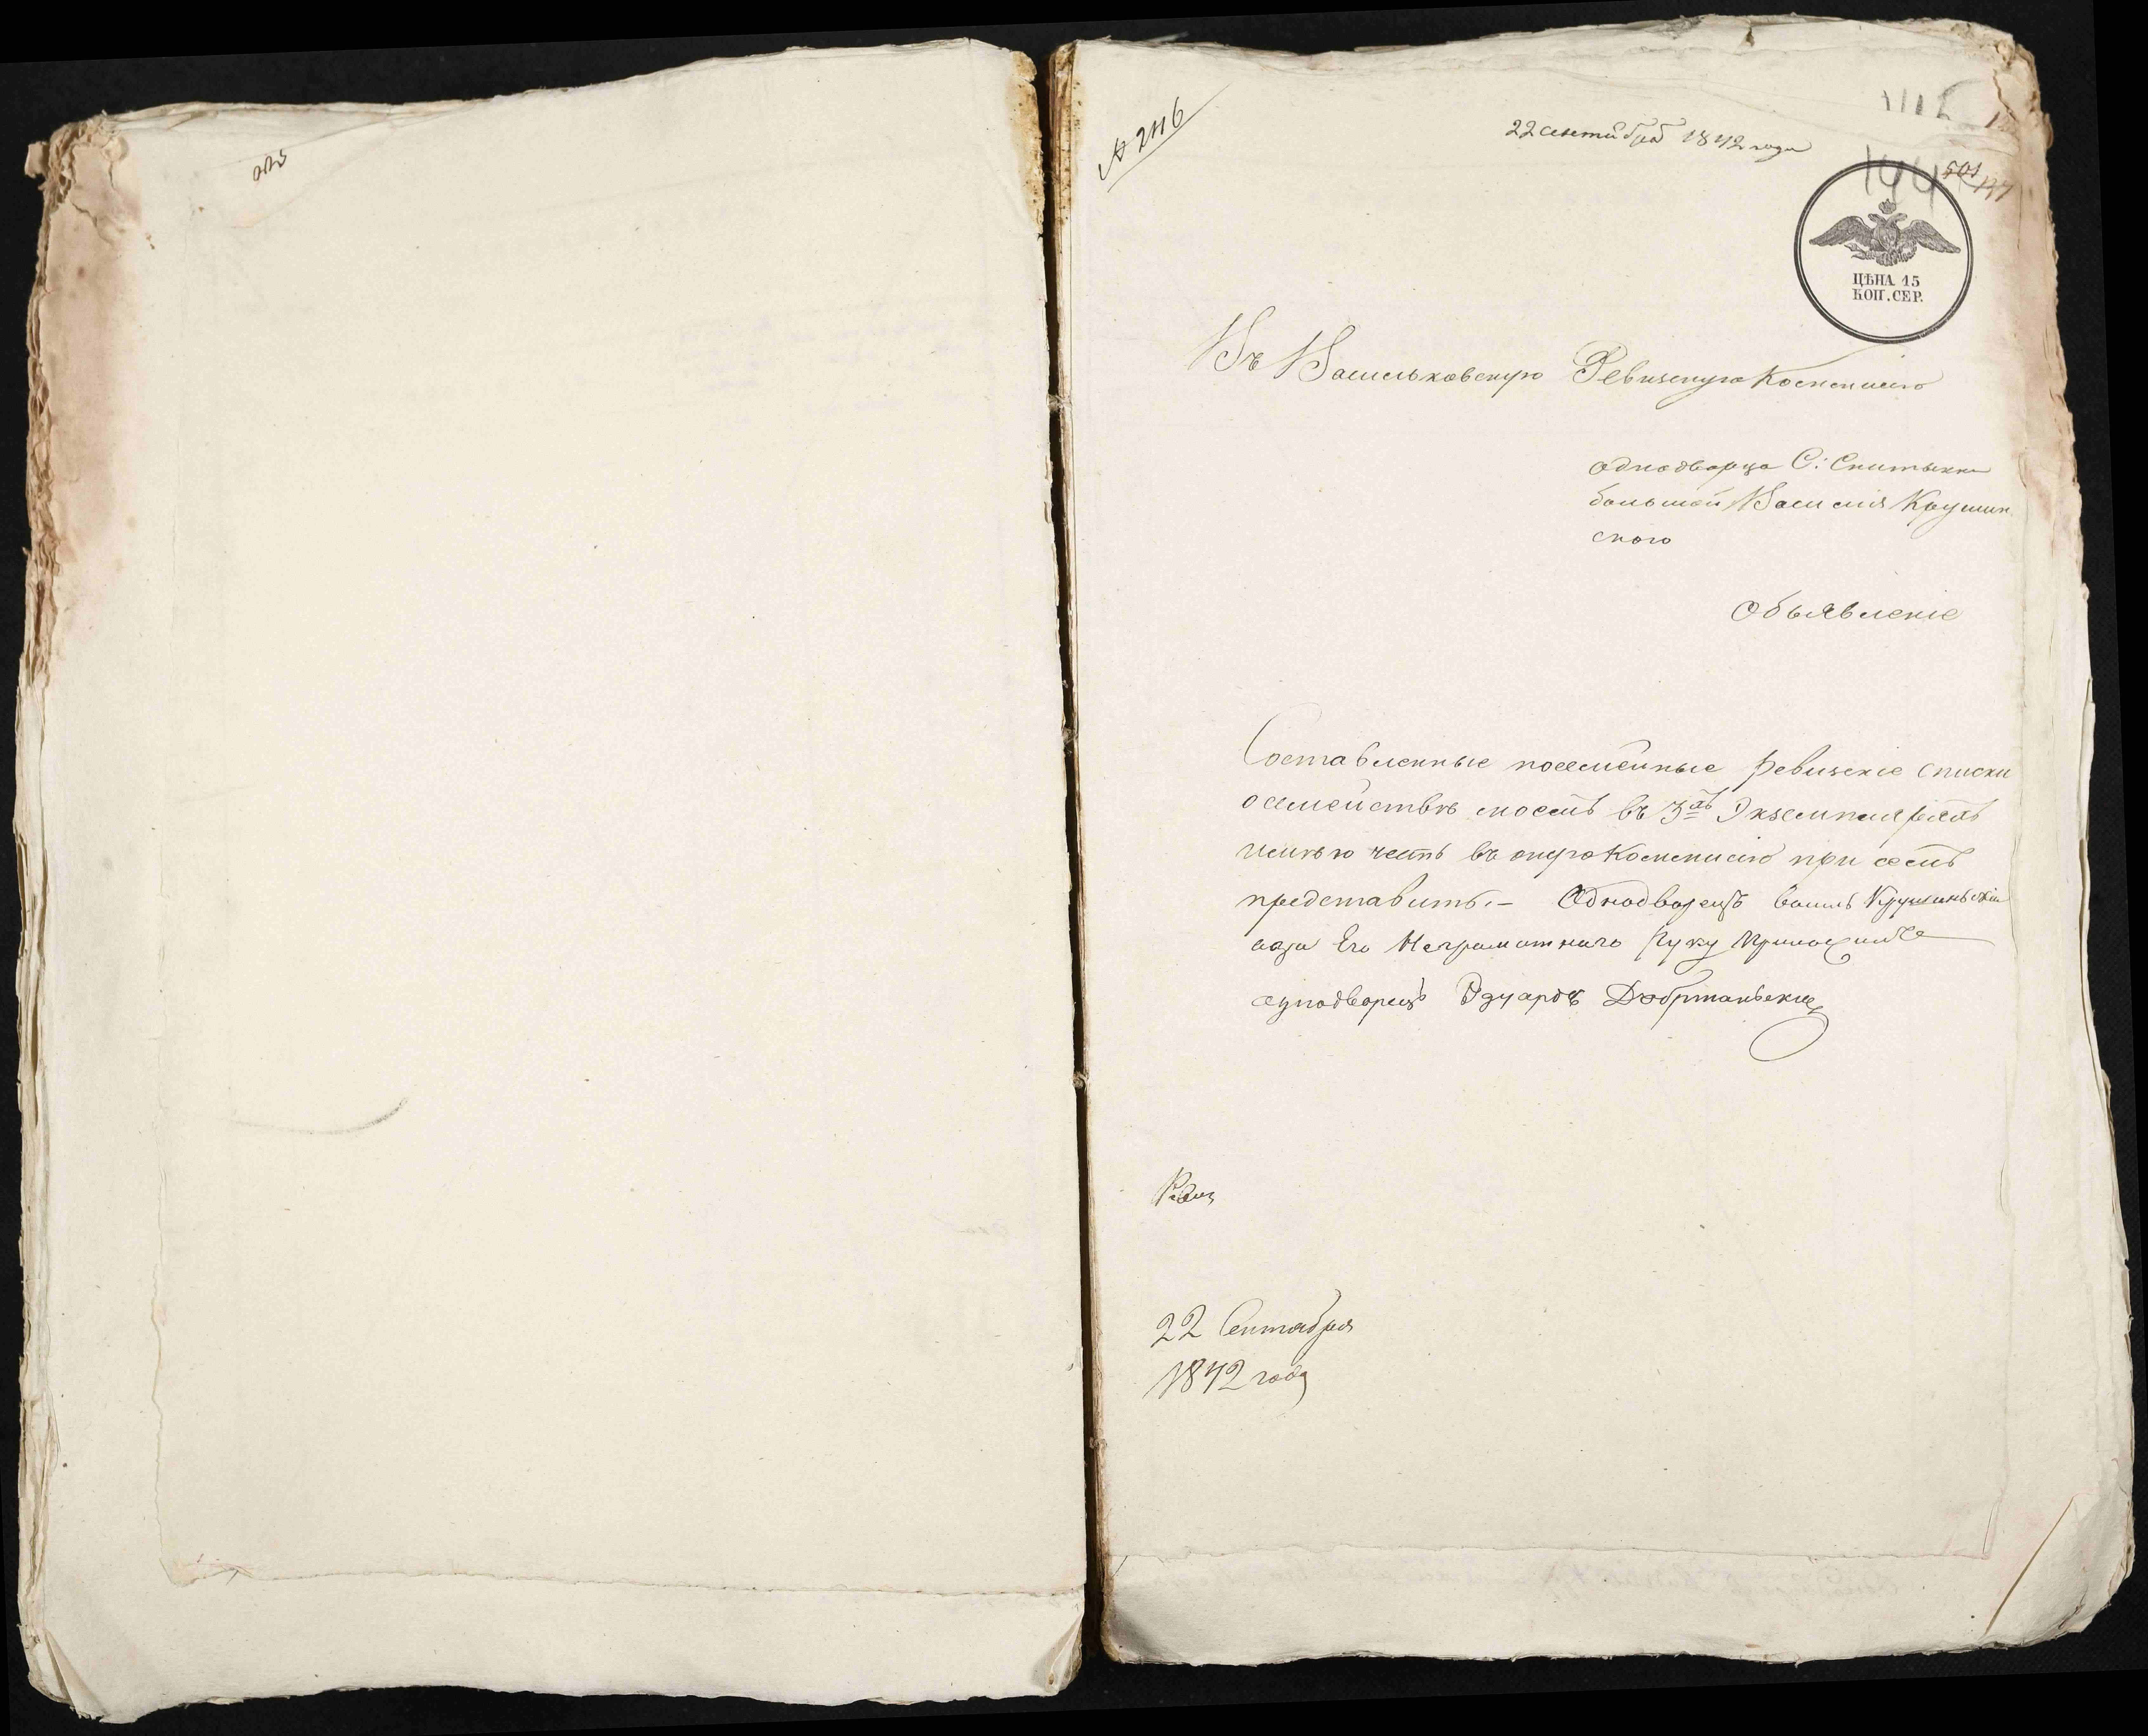 № 2116
22 сентября 1842 года
501
144
137
ЦѢНА 15
КОП. СЕР.
Въ Васильковскую Ревизскую Коммисию
однодворца С: Снитынки
большой Василия Крушин
ского
объявление
Составленные посемейные ревизские списки
осемействѣ моемъ въ 3хъ Экземплярахъ
имѣю честь въ оную Коммисию при семъ
представить.– Однодворецъ василь Крушиньский
аза Его Неграмотнаго Руку Приложилъ
однодворецъ Эдуардъ Добржаньский
22 Сентября
1842 года